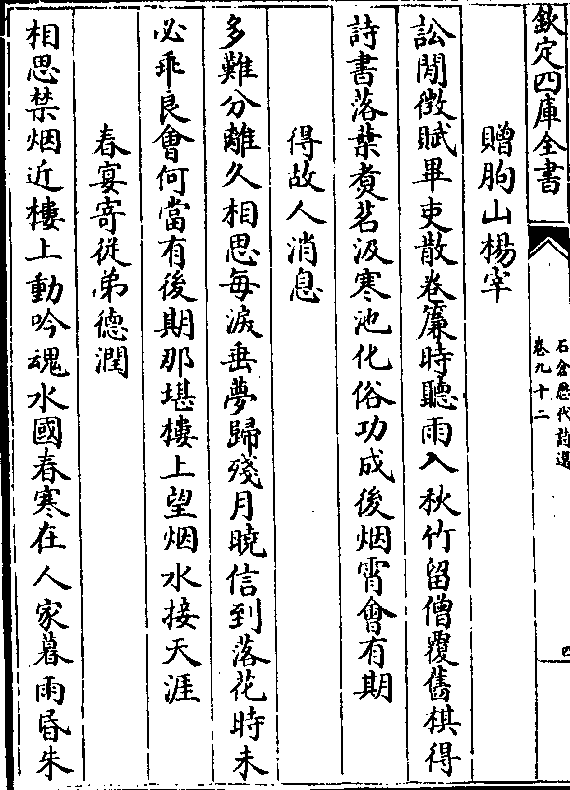 欽定四庫全書
石倉歷代詩選
卷九十二
四
贈朐山楊宰
訟閒徴賦畢吏散卷簾時聽雨入秋竹留僧覆舊棋得
詩書落葉煑茗汲寒池化俗功成後烟霄會有期
得故人消息
多難分離久相思每淚垂夢歸殘月曉信到落花時未
必乖良會何當有後期那堪樓上望烟水接天涯
春宴寄從弟德潤
相思禁烟近樓上動吟魂水國春寒在人家暮雨昏朱